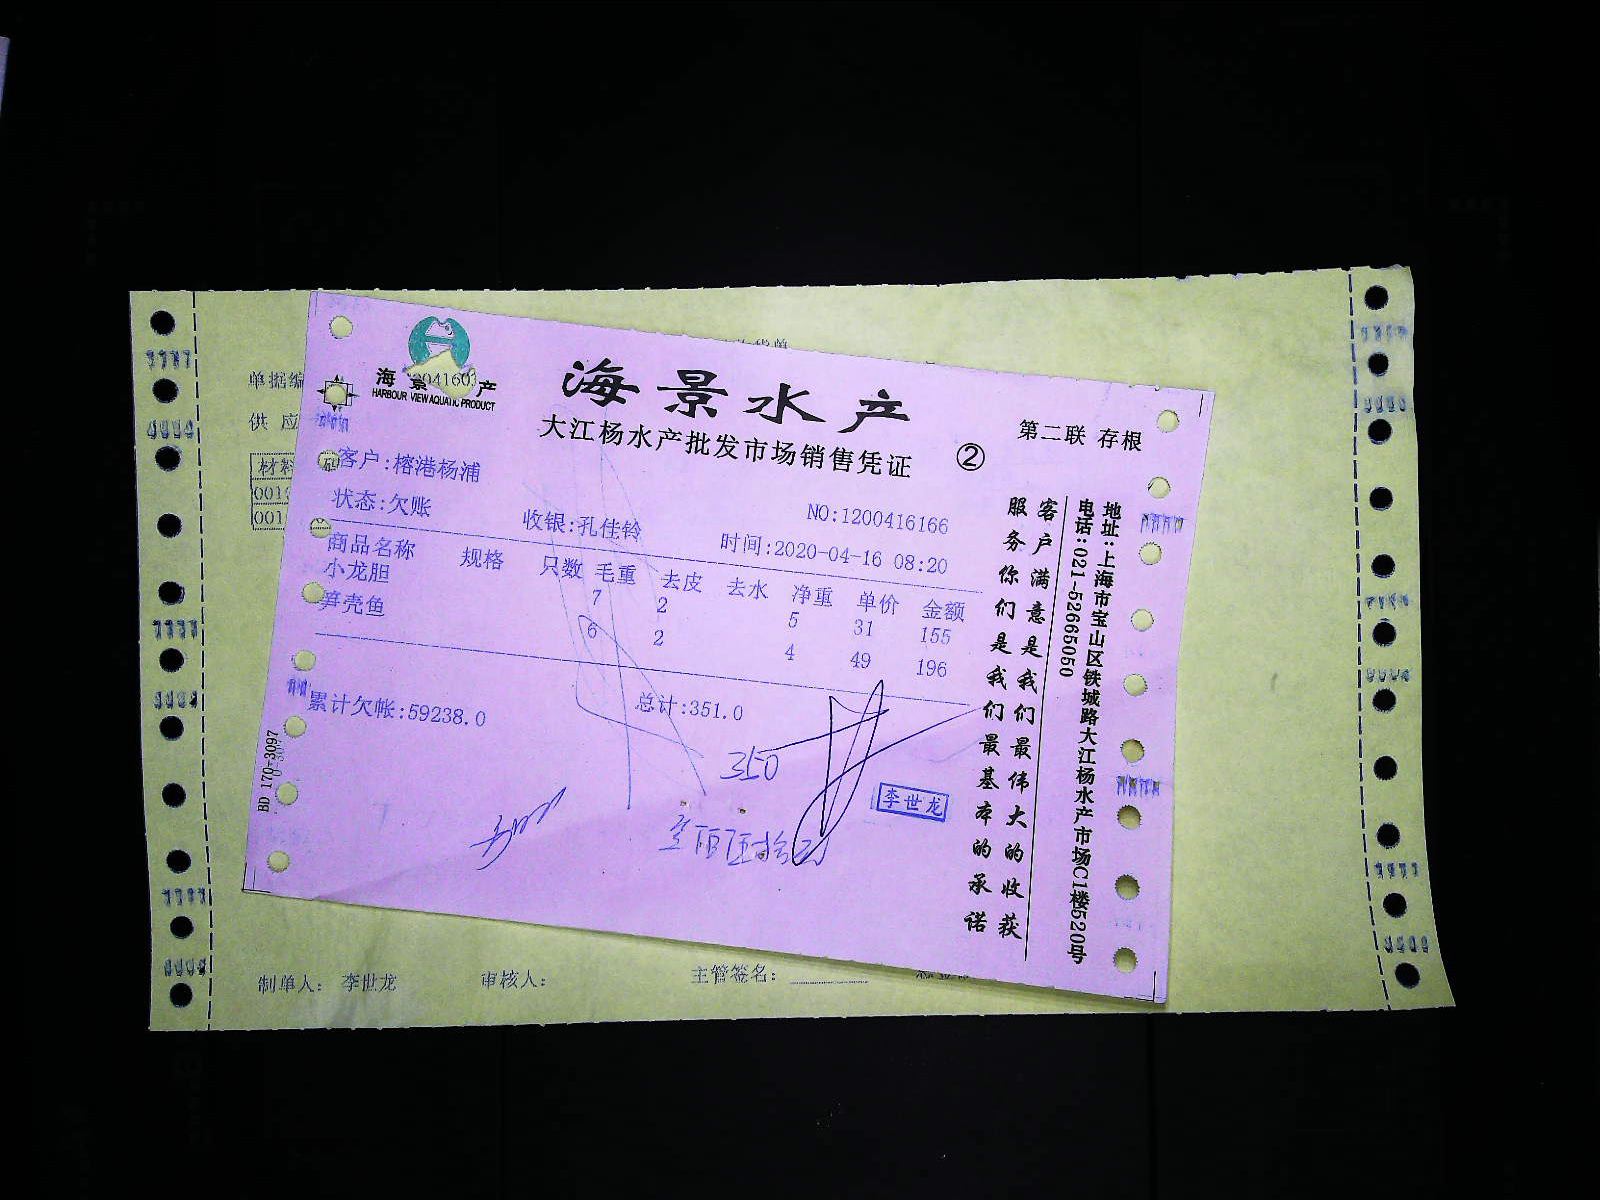 海景产
HARBOUR VIEW AQUATIC PRODUCT
海景水产
大江杨水产批发市场销售凭证
②
第二联 存根
客户:榕港杨浦
状态:欠账
收银:孔佳铃
NO:1200416166
时间:2020-04-16 08:20
商品名称 规格 只数 毛重 去皮 去水 净重 单价 金额
小龙胆 7 2 5 31 155
笋壳鱼 6 2 4 49 196
累计欠帐:59238.0
总计:351.0
350
李世龙
客户满意是我们最伟大的收获
服务你们是我们最基本的承诺
地址:上海市宝山区铁城路大江杨水产市场C1楼520号
电话:021-52665050
BD 170-3097
单据编
供应
材料
001
001
制单人: 李世龙
审核人:
主管签名: